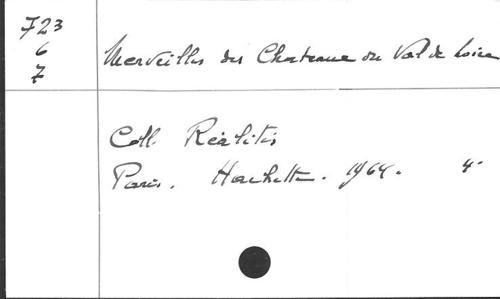 723
6
7
Merveilles des Chateaux du Val de Loire
Coll. Réalités
Paris. Hachette. 1964. 4°